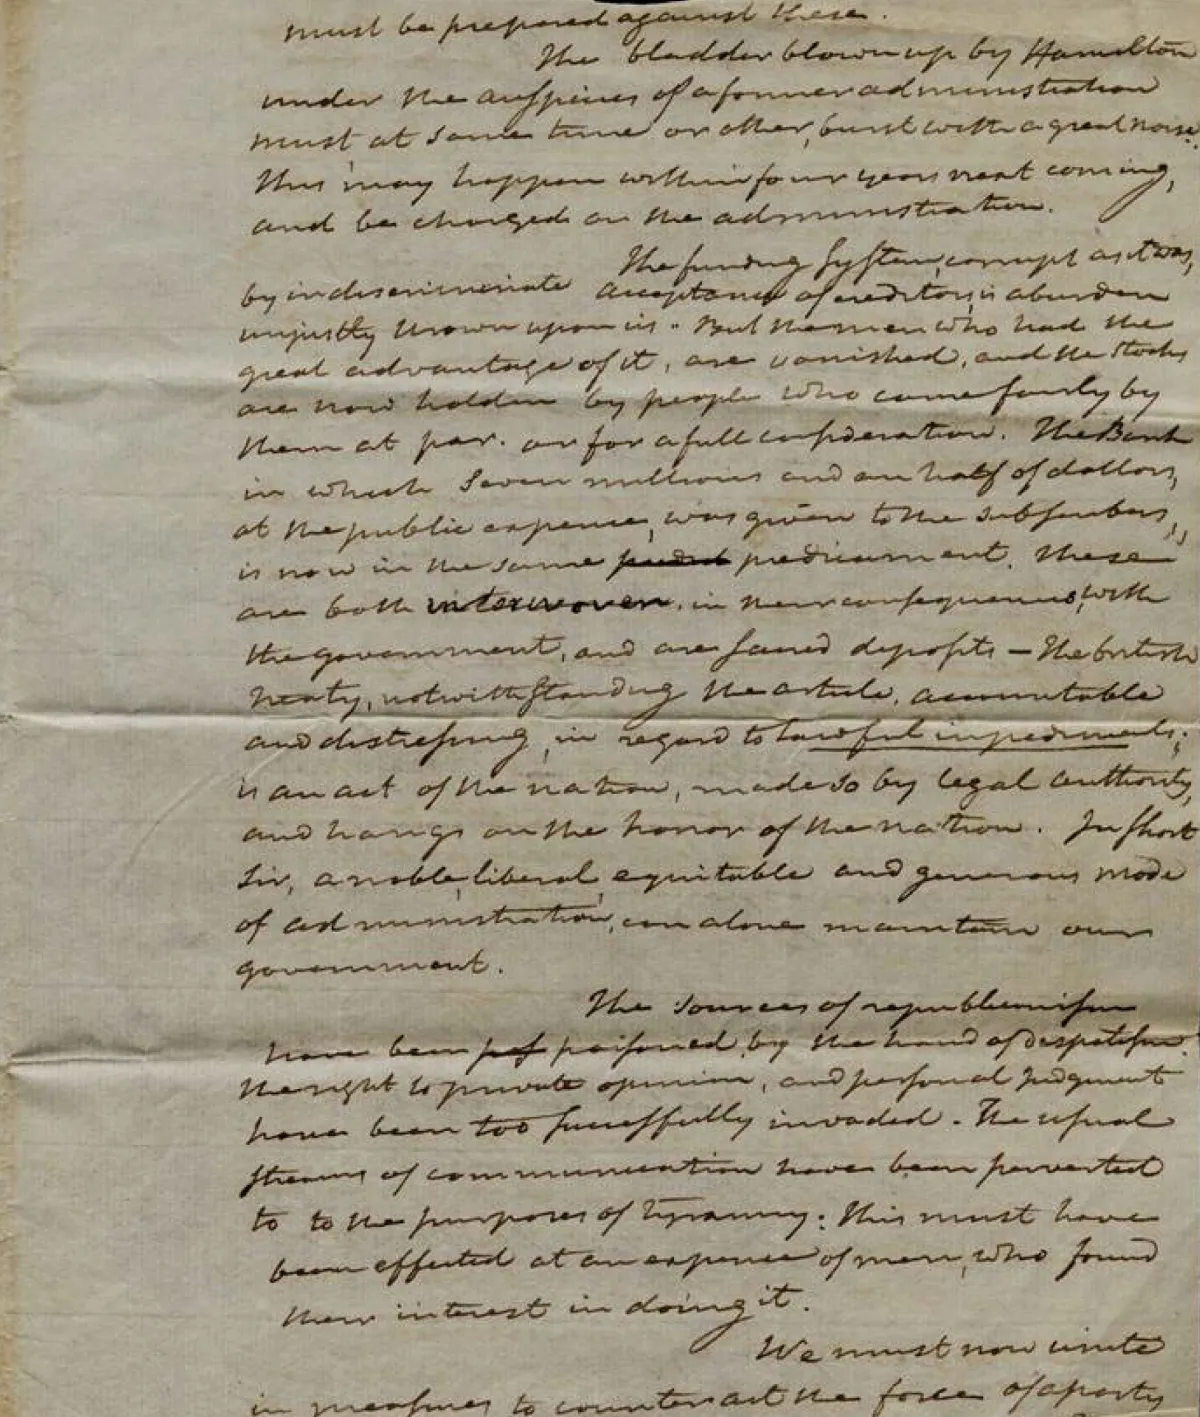 must be prepared against these.
The bladder blown up by Hamilton
under the auspices of a former administration
must at some time or other, burst with a great noise.
This may happen within four years next coming,
and be charged on the administration.
The funding system, corrupt as it was,
by indiscriminate acceptance of creditors, is a burden
unjustly thrown upon us. But the men who had the
great advantage of it, are vanished, and the stocks
are now holden by people who came fairly by
them at par. or for a full consideration. The Bank
in which seven millions and an half of dollars,
at the public expence, was given to the subscribers,
is now in the same predicament. These
are both interwoven, in their consequences, with
the government, and are sacred deposits — The british
treaty, notwithstanding the article,
and distressing, in regard to lawful impediments,
is an act of the nation, made so by legal authority,
and hangs on the honor of the nation. In short
Sir, a noble, liberal, equitable and generous mode
of administration, can alone maintain our
government.
The sources of republicanism
have been poisoned by the hand of despotism.
the right to private opinion, and personal judgment
have been too successfully invaded. The usual
streams of communication have been perverted
to to the purposes of tyranny: this must have
been effected at an expence of men, who found
their interest in doing it.
We must now unite
in measures to counteract the force of a party